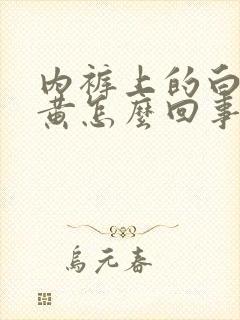 内裤上的白
黄怎麼回事
烏元春